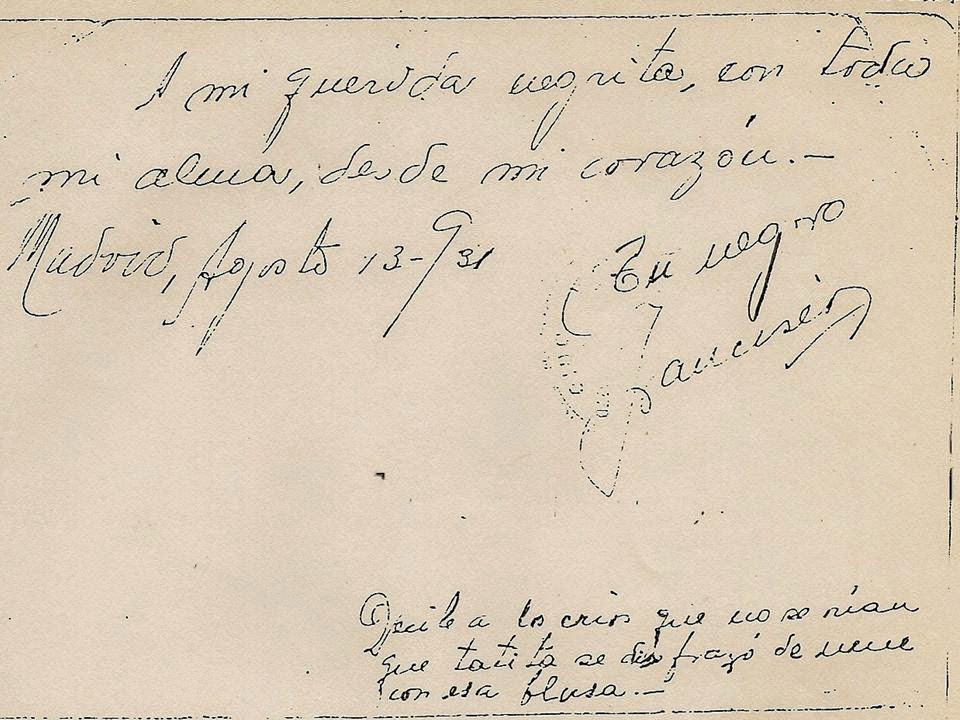 A mi querida negrita, con toda
mi alma, desde mi corazón.—
Madrid, Agosto 13-931
Tu negro
Decile a los crios que no se rían
que tatita se disfrazó de nene
con esa blusa.—